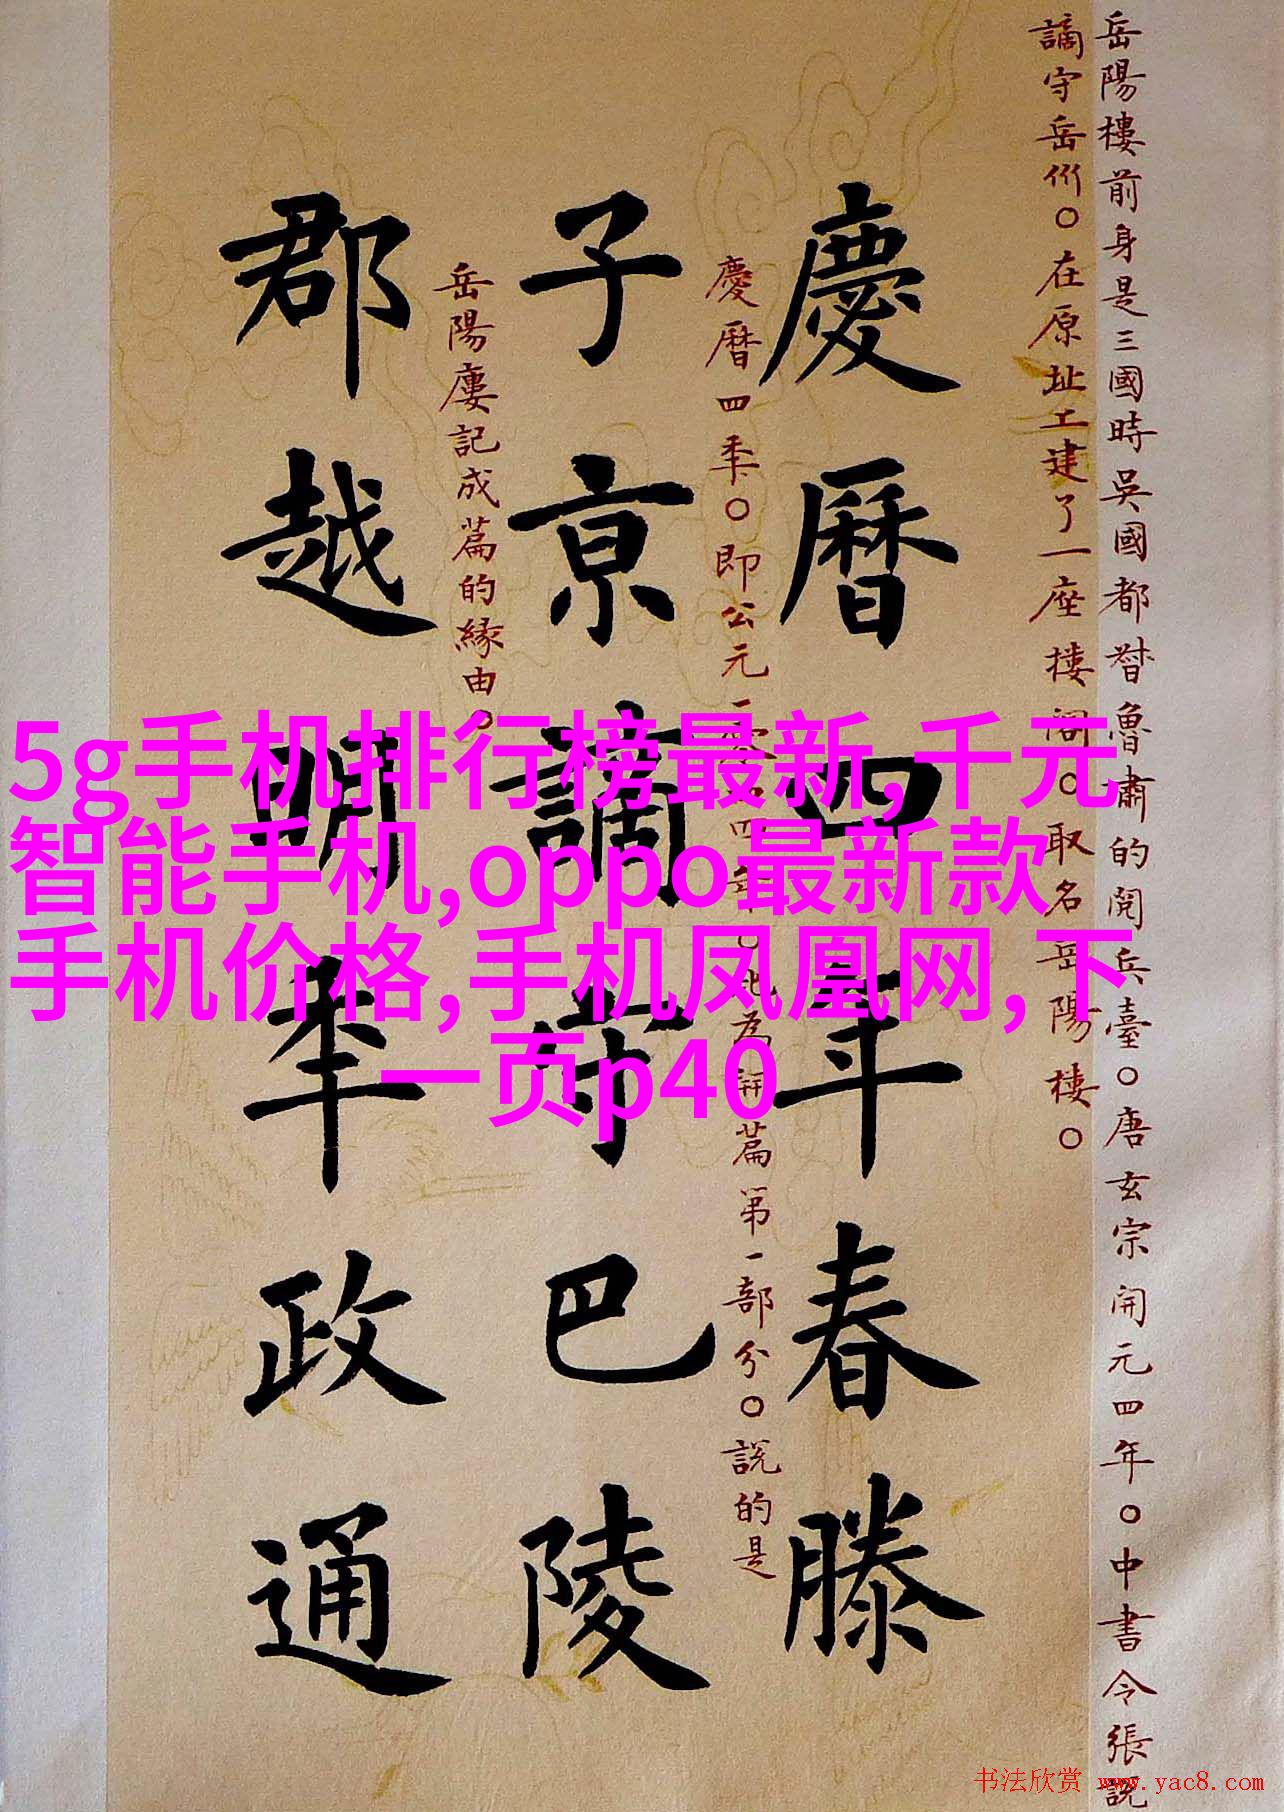 岳陽樓前身是三國時吳國都督魯肅的閱兵臺○唐玄宗開元四年○中書令張說
謫守岳州○在原址工建了一座樓閣○取名岳陽樓○
慶曆四年春滕
慶曆四年○即公元一零四四年○此為開篇第一部份○說的是
子京謫守巴陵
岳陽廔記成篇的緣由○
郡越明年政通
5g手机排行榜最新,千元
智能手机,oppo最新款
手机价格,手机凤凰网,下
一页p40
书法欣赏 www.yac8.com